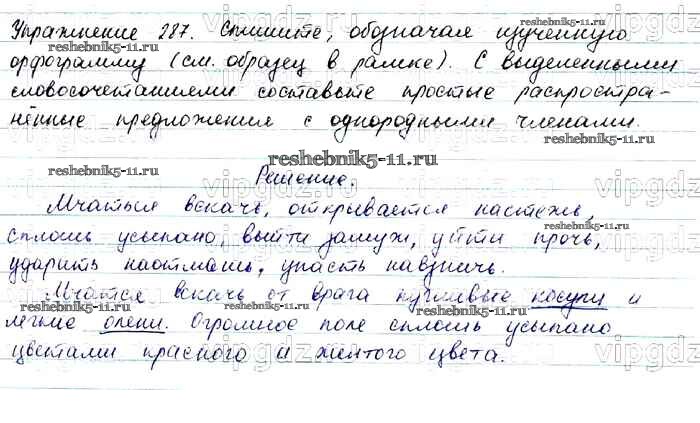 Упражнение 287. Спишите, обозначая изученную
reshebnik5-11.ru reshebnik5-11.ru
орфограмму (см. образец в рамке). С выделенными
словосочетаниями составьте простые распростра-
нённые предложения с однородными членами.
reshebnik5-11.ru
Решение.
reshebnik5-11.ru reshebnik5-11.ru
Мчаться вскачь, открывается настежь,
сплошь усыпано, выйти замуж, уйти прочь,
reshebnik5-11.ru
ударить наотмашь, упасть навзничь.
Мчатся вскачь от врага пугливые косули и
reshebnik5-11.ru reshebnik5-11.ru
лёгкие олени. Огромное поле сплошь усыпано
цветами красного и желтого цвета.